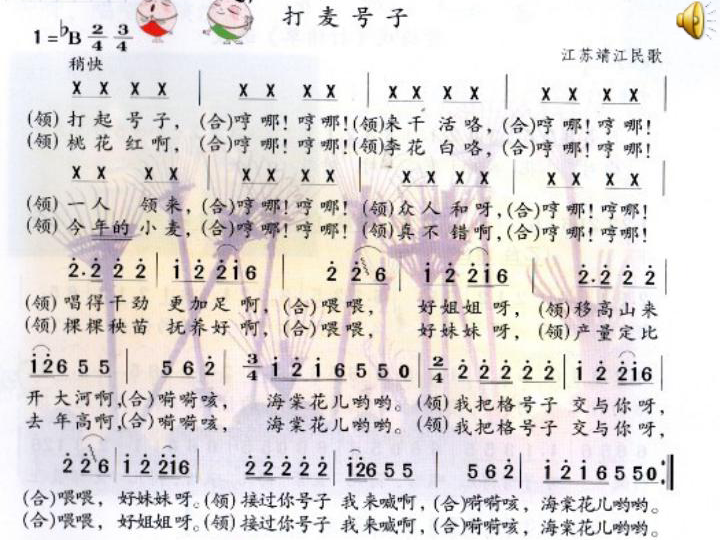 打麦号子
1=♭B 2/4 3/4
稍快
江苏靖江民歌
X X X X | X X X X | X X X X | X X X X |
(领)打起号子，(合)哼哪！哼哪！(领)来干活咯，(合)哼哪！哼哪！
(领)桃花红啊，(合)哼哪！哼哪！(领)李花白咯，(合)哼哪！哼哪！
X X X X | X X X X | X X X X | X X X X |
(领)一人 领来，(合)哼哪！哼哪！(领)众人和呀，(合)哼哪！哼哪！
(领)今年的小麦，(合)哼哪！哼哪！(领)真不错啊，(合)哼哪！哼哪！
2̇. 2̇ 2̇ 2̇ | 1̇ 2̇ 2̇1̇6 | 2̇ 2̇ 6 | 1̇ 2̇ 2̇1̇6 | 2̇. 2̇ 2̇ 2̇ |
(领)唱得干劲 更加足啊，(合)喂喂， 好姐姐呀，(领)移高山来
(领)棵棵秧苗 抚养好啊，(合)喂喂， 好妹妹呀，(领)产量定比
1̇2̇6 5 5 | 5 6 2̇ | 3/4 1̇ 2̇ 1̇ 6 5 5 0 | 2/4 2̇ 2̇ 2̇ 2̇ 2̇ | 1̇ 2̇ 2̇1̇6 |
开大河啊，(合)嗬嗬咳， 海棠花儿哟哟。(领)我把格号子 交与你呀，
去年高啊，(合)嗬嗬咳， 海棠花儿哟哟。(领)我把格号子 交与你呀，
2̇ 2̇ 6 | 1̇ 2̇ 2̇1̇6 | 2̇ 2̇ 2̇ 2̇ 2̇ | 1̇2̇6 5 5 | 5 6 2̇ | 1̇ 2̇ 1̇ 6 5 5 0 :||
(合)喂喂，好妹妹呀。(领)接过你号子 我来喊啊，(合)嗬嗬咳，海棠花儿哟哟。
(合)喂喂，好姐姐呀。(领)接过你号子 我来喊啊，(合)嗬嗬咳，海棠花儿哟哟。